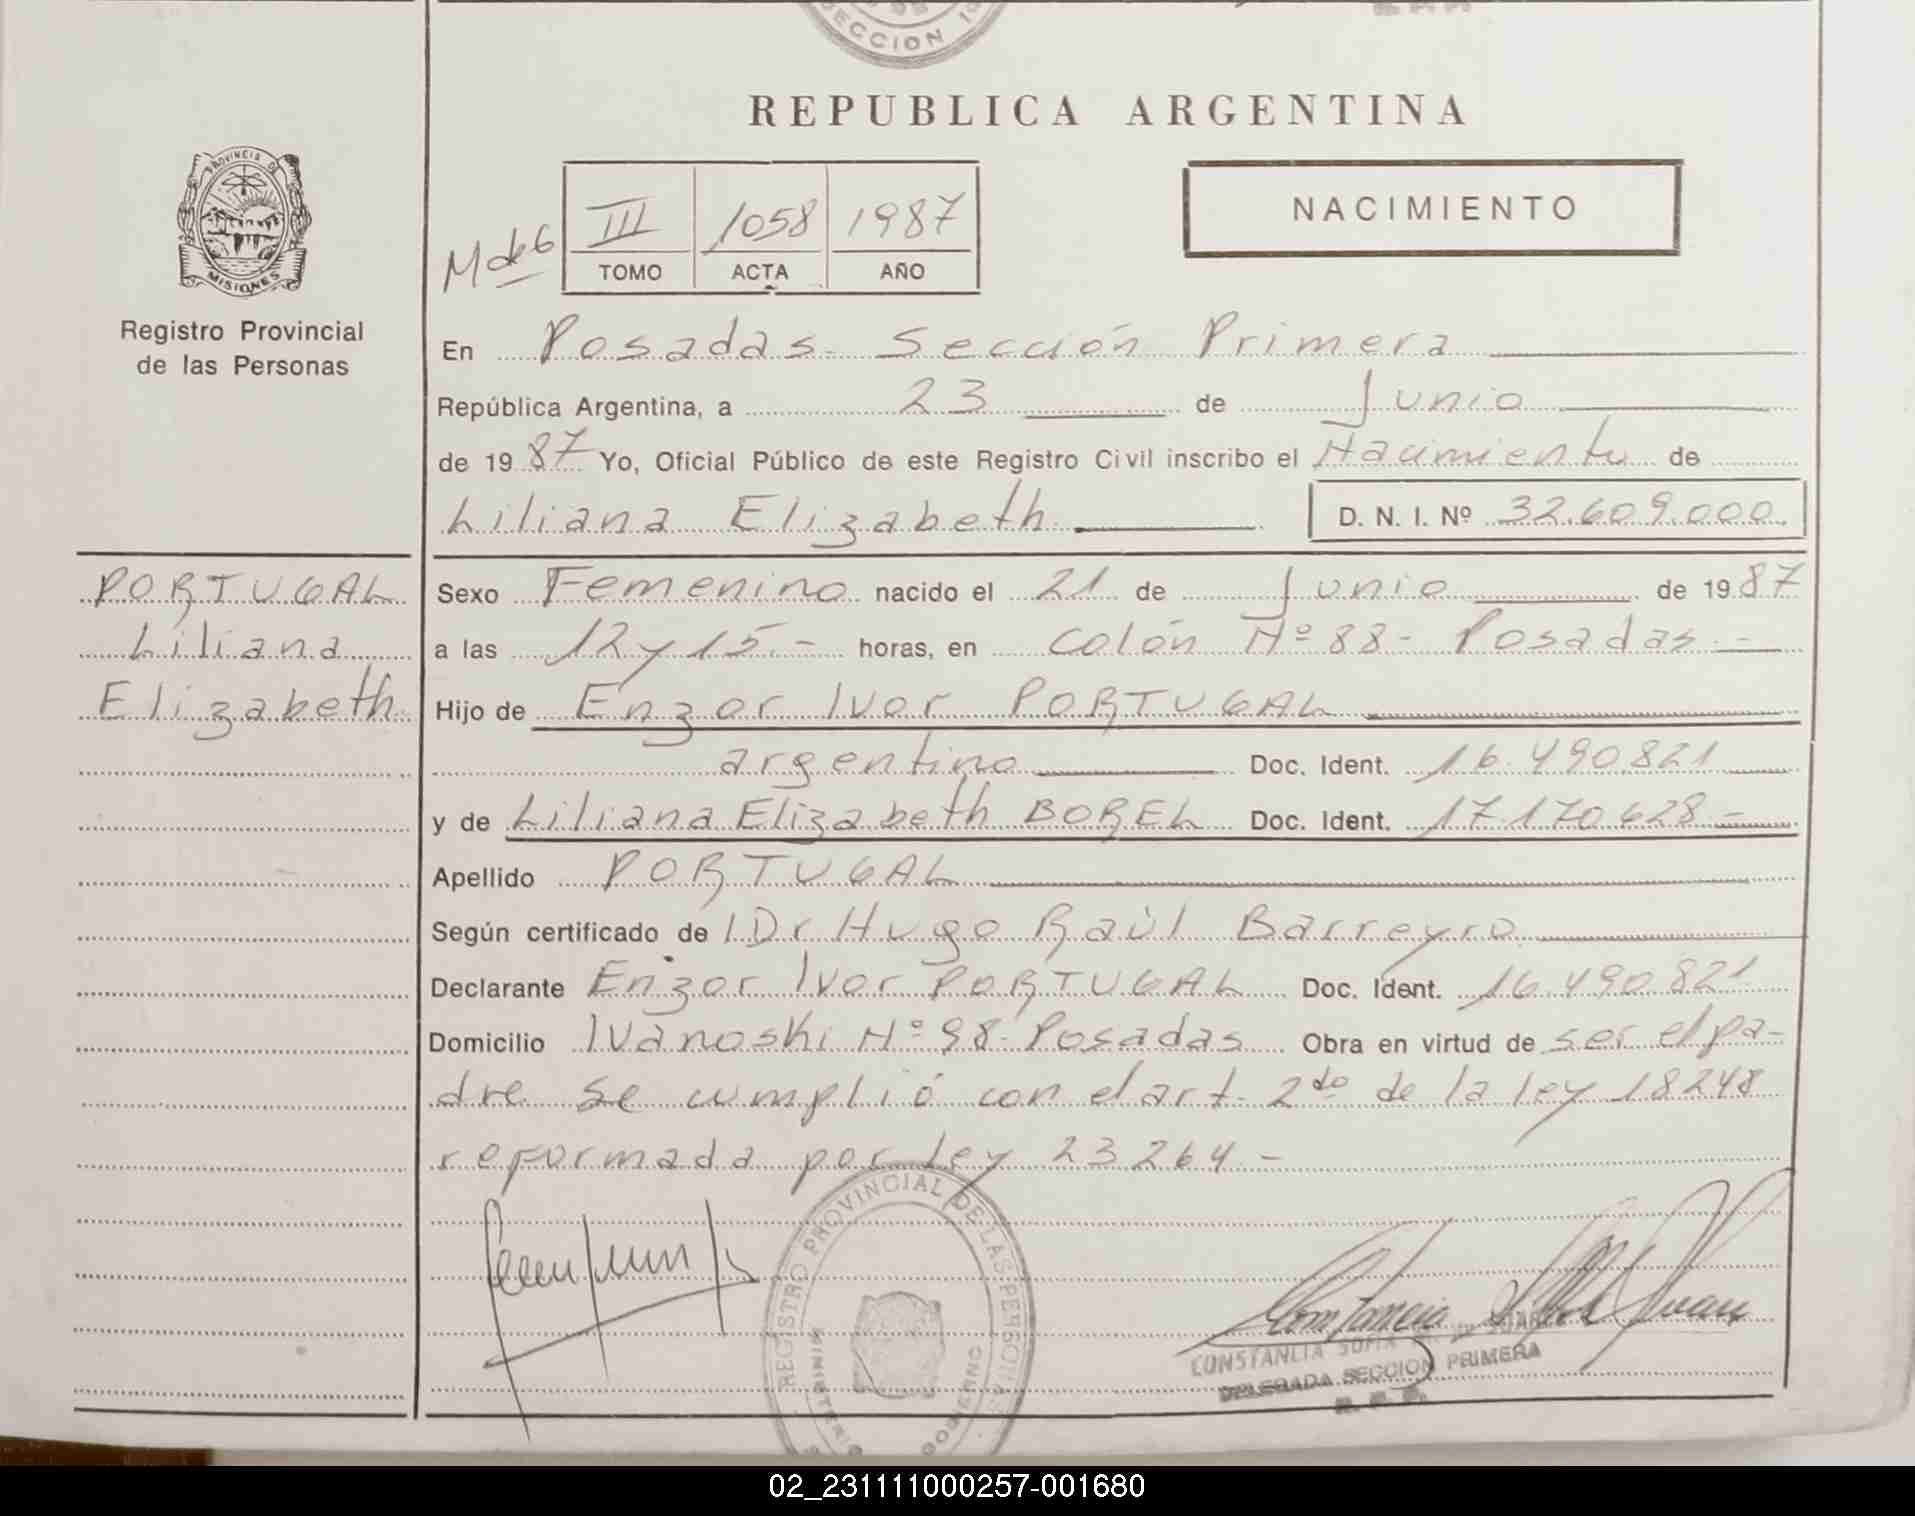 SECCION 1
REPUBLICA ARGENTINA
PROVINCIA DE
MISIONES
Registro Provincial
de las Personas
NACIMIENTO
III 1058 1987
TOMO ACTA AÑO
En Posadas - Sección Primera
República Argentina, a 23 de Junio
de 1987 Yo, Oficial Público de este Registro Civil inscribo el Nacimiento de
Liliana Elizabeth D. N. I. Nº 32.609.000
PORTUGAL
Liliana
Elizabeth
Sexo Femenino nacido el 21 de Junio de 1987
a las 12 y 15.- horas, en Colón Nº 88 - Posadas -
Hijo de Enzor Ivor PORTUGAL
argentino Doc. Ident. 16.490.821
y de Liliana Elizabeth BOREL Doc. Ident. 17.170.628 -
Apellido PORTUGAL
Según certificado de l Dr Hugo Raúl Barreyro
Declarante Enzor Ivor PORTUGAL Doc. Ident. 16.490.821
Domicilio Ivanoski Nº 98 - Posadas Obra en virtud de ser el pa-
dre. Se cumplió con el art. 2do de la ley 18248
reformada por ley 23264 -
REGISTRO PROVINCIAL DE LAS PERSONAS
CONSTANCIA SOFIA
DELEGADA SECCION PRIMERA
R. P. P.
02_231111000257-001680